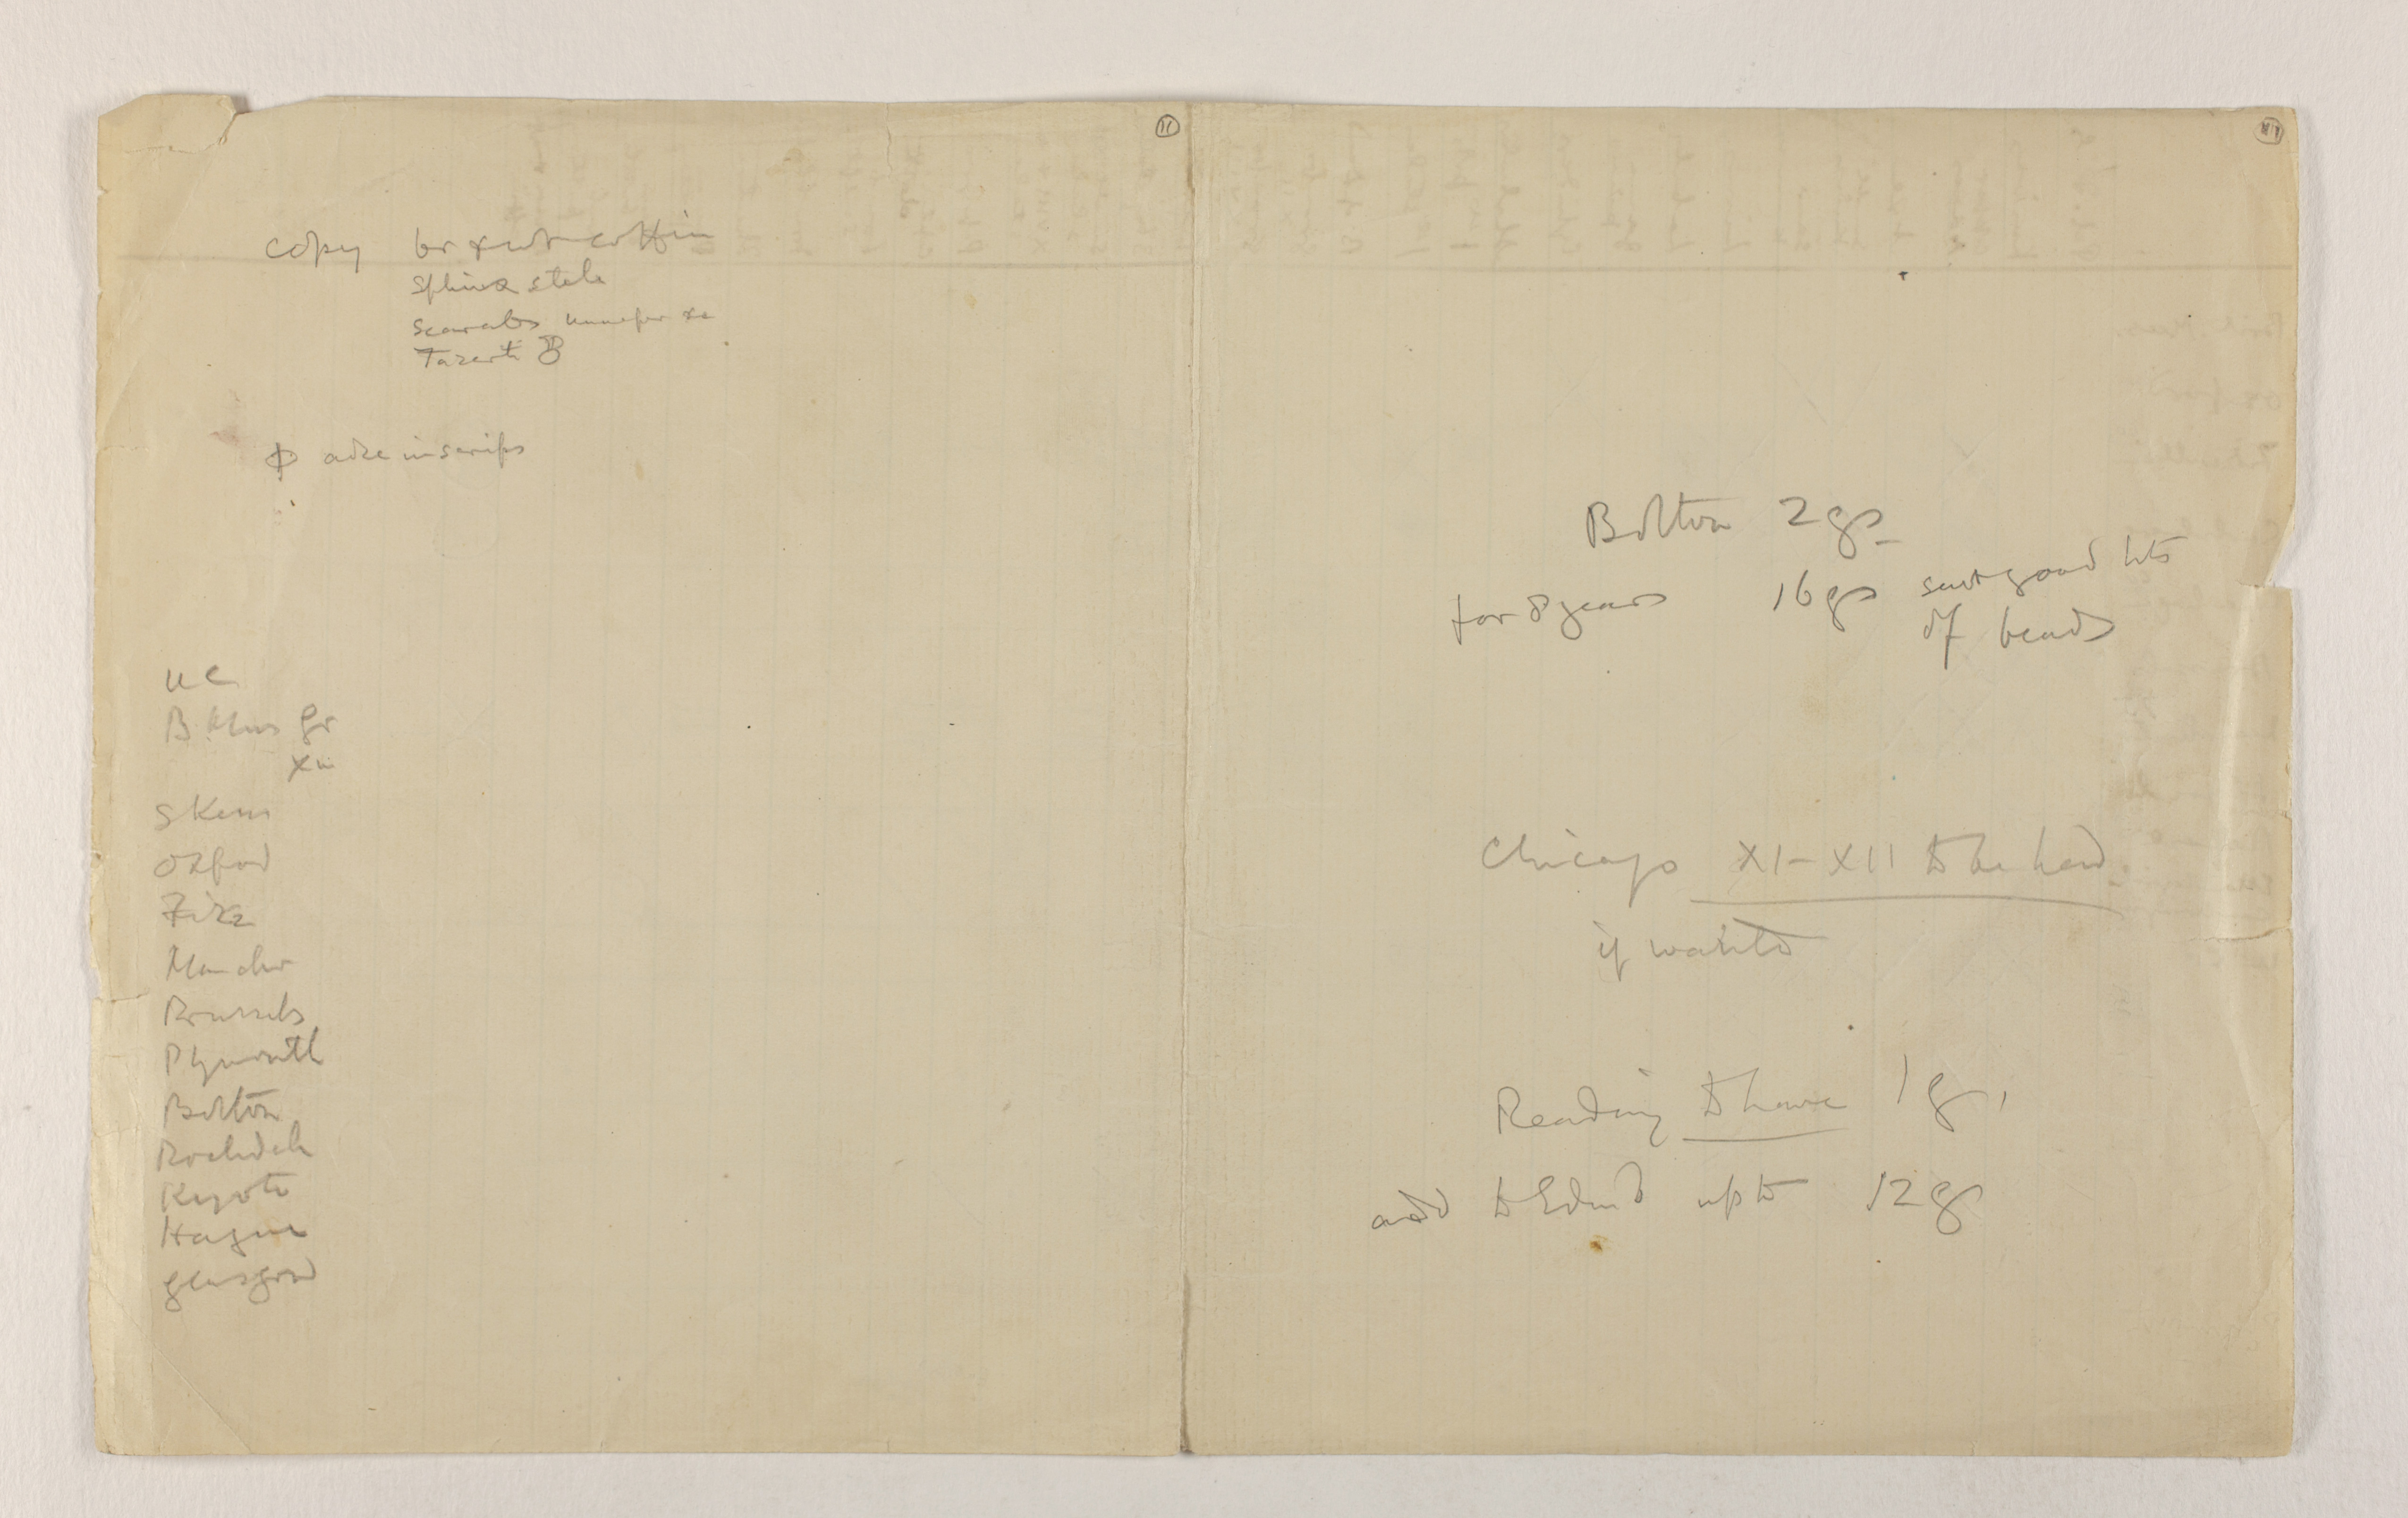 11
copy br & wt coffin
Sphinx stele
Scarabs &c
Tazerti
adze inscrips
UC
B Mus Gr
XII
S Kens
Oxford
Fitz
Manchr
Brussels
Plymouth
Bolton
Rochdale
Kyoto
Hague
Glasgow
Bolton 2 gs
for 8 years 16 gs sent good lots
of beads
Chicago XI-XII to be had
if wanted
Reading to have 1 g,
add to Edinb up to 12 gs